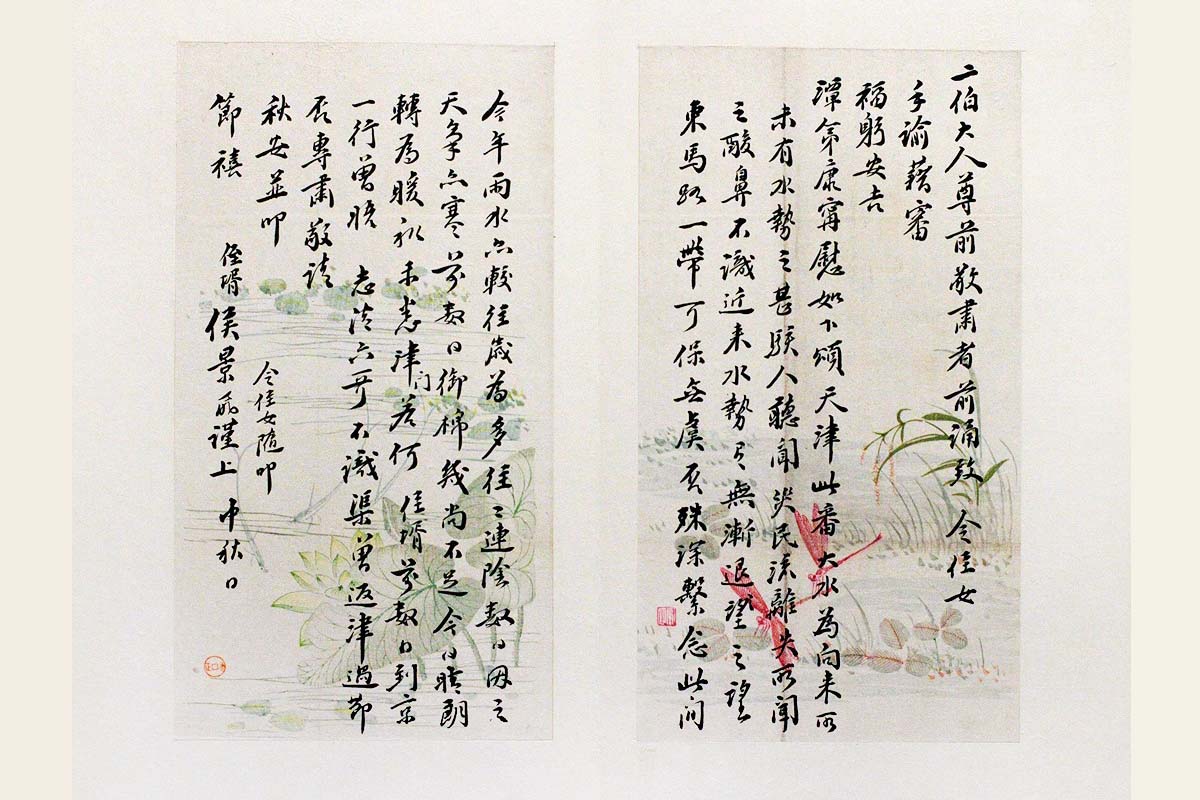 二伯大人尊前敬肅者前誦致 令侄女
手諭藉審
福躬安吉
潭第康甯慰如下頌天津此番大水為向来所
未有水勢之甚駭人聽聞災民流離失所聞
之酸鼻不識近来水勢已無漸退望之望
東馬路一帶可保無虞否殊深繫念此間
今年雨水亦較往歲為多往々連陰數日因之
天氣亦寒前數日御棉幾尚不足今日晴朗
轉為暖和未悉津门若何 侄壻前數日到京
一行曾晤 志清六哥不識渠曾返津過節
否專肅敬請
秋安並叩
節禧
令侄女隨叩
侄壻侯景飛謹上 中秋日